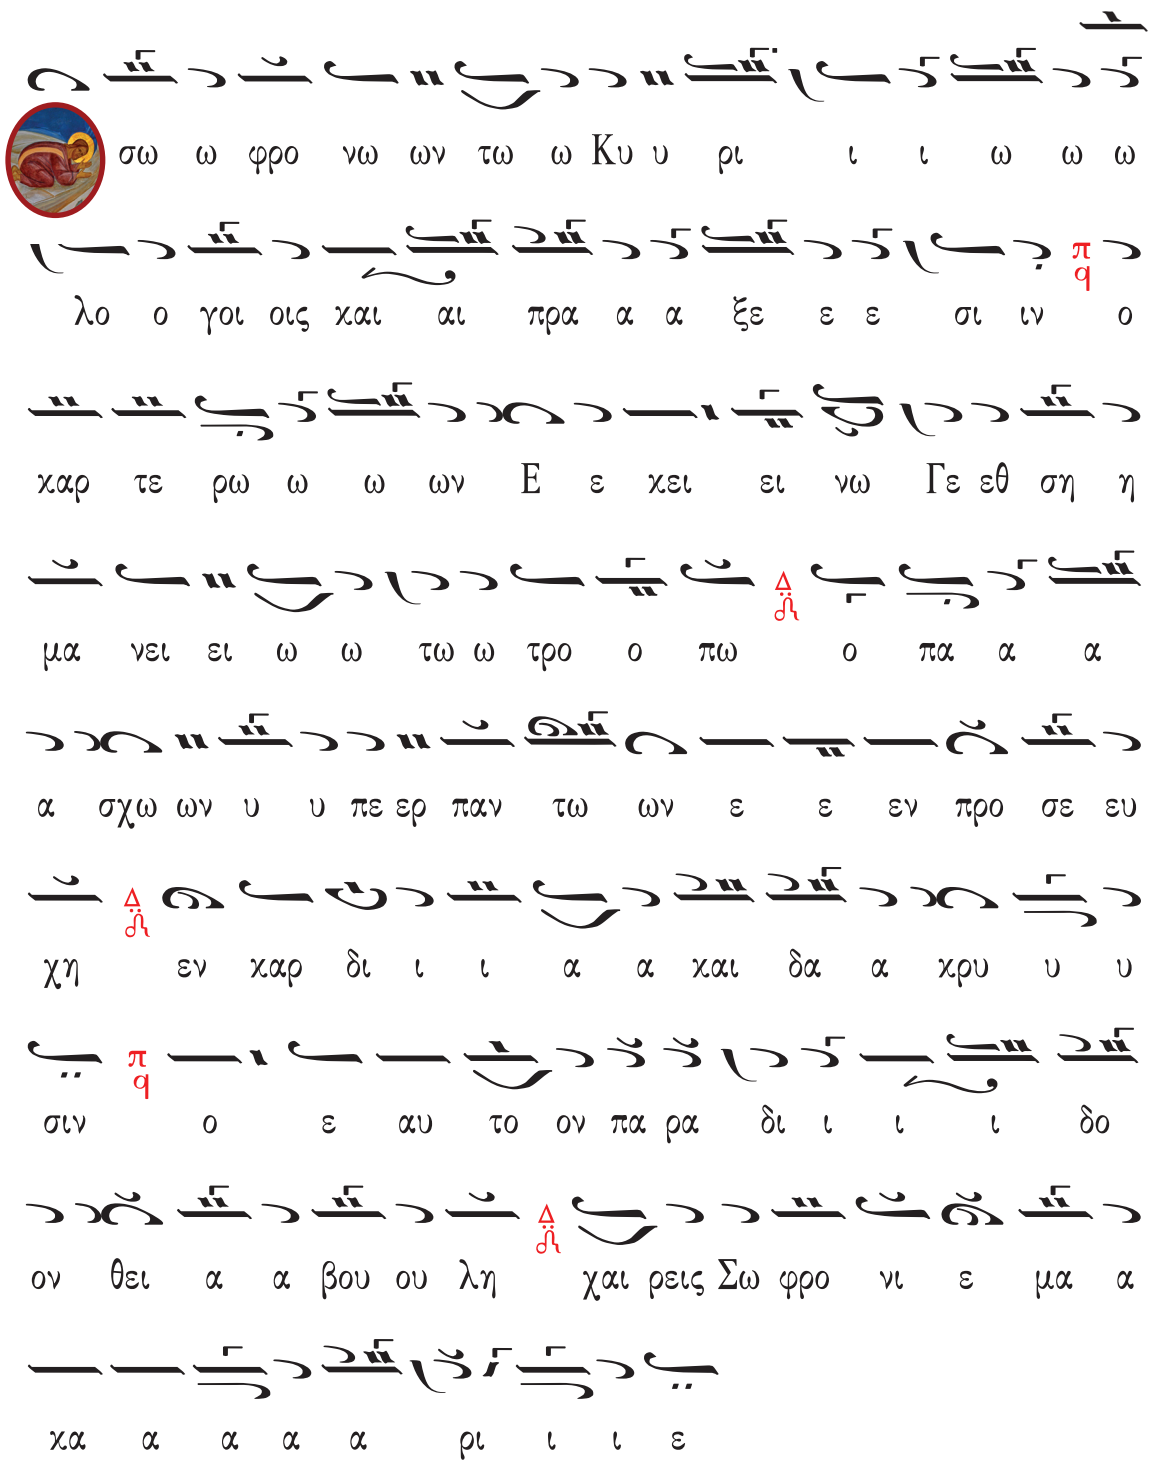 σω ω φρο νω ων τω ω Κυ υ ρι ι ι ω ω ω
λο ο γοι οις και αι πρα α α ξε ε ε σι ιν π q ο
καρ τε ρω ω ω ων Ε ε κει ει νω Γε εθ ση η
μα νει ει ω ω τω ω τρο ο πω Δ ο πα α α
α σχω ων υ υ πε ερ παν τω ων ε ε εν προ σε ευ
χη Δ εν καρ δι ι ι α α και δα α κρυ υ υ
σιν π q ο ε αυ το ον πα ρα δι ι ι ι δο
ον θει α α βου ου λη Δ χαι ρεις Σω φρο νι ε μα α
κα α α α α ρι ι ι ε